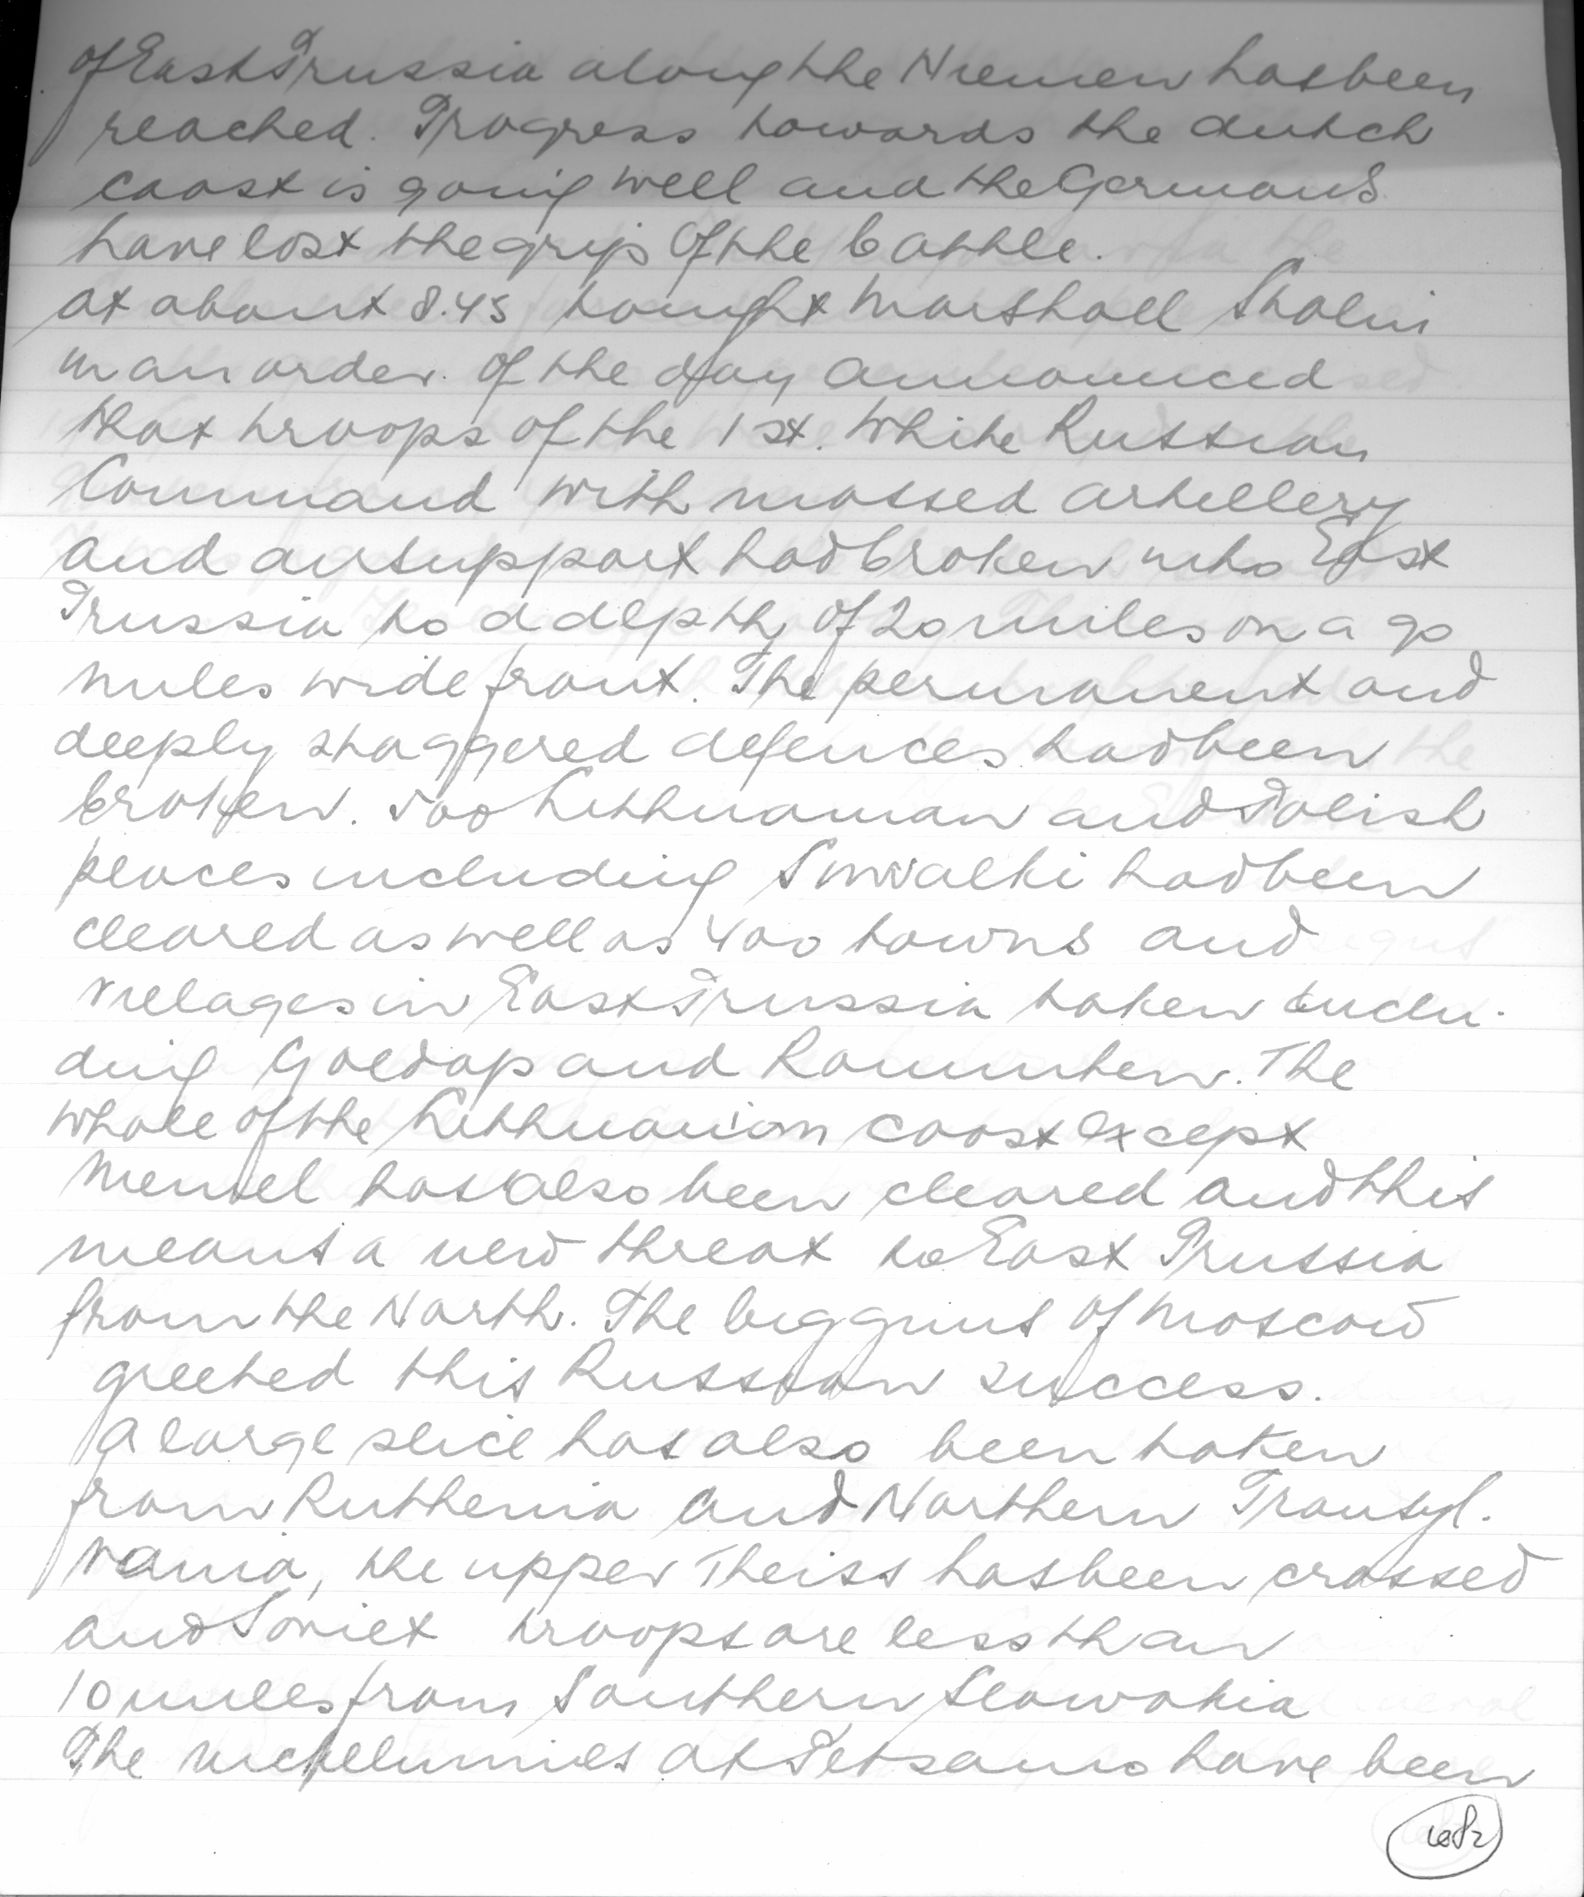 of East Prussia along the Niemen has been
reached. Progress towards the dutch
coast is going well and the Germans
have lost the grip of the battle.
at about 8.45 tonight Marshall Stalin
in an order of the day announced
that troops of the 1st. White Russian
Command with massed artillery
and airsupport had broken into East
Prussia to a depth of 20 miles on a 90
miles wide front. The permanent and
deeply staggered defences had been
broken. 500 Lithuanian and Polish
places including Suwalki had been
cleared as well as 400 towns and
villages in East Prussia taken inclu-
ding Goldap and Rominten. The
whole of the Lithuanian coast except
Memel has also been cleared and this
meant a new threat to East Prussia
from the North. The big guns of Moscow
greeted this Russian success.
A large slice has also been taken
from Ruthenia and Northern Transyl-
vania, the upper Theiss has been crossed
and Soviet troops are less than
10 miles from Southern Slowakia
The nickelmines at Petsamo have been